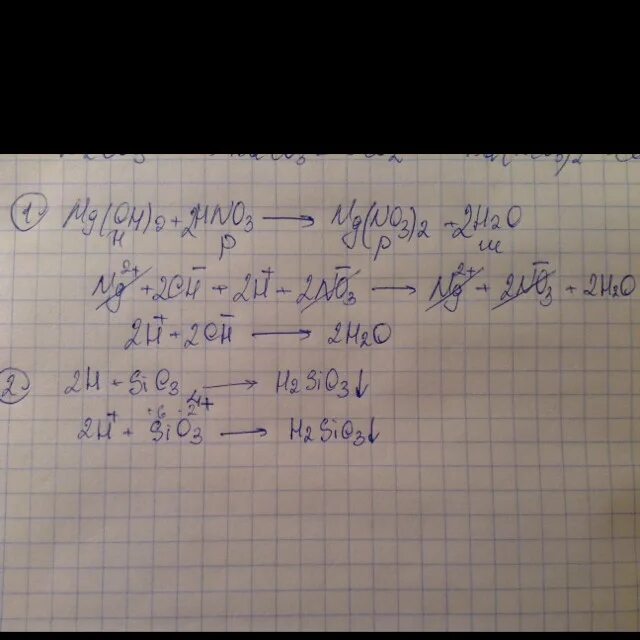 1. Mg(OH)₂ + 2HNO₃ → Mg(NO₃)₂ + 2H₂O
н р р ш
Mg²⁺ + 2OH⁻ + 2H⁺ + 2NO₃⁻ → Mg²⁺ + 2NO₃⁻ + 2H₂O
2H⁺ + 2OH⁻ → 2H₂O
2. 2H + SiO₃ → H₂SiO₃↓
2H⁺ + SiO₃ → H₂SiO₃↓